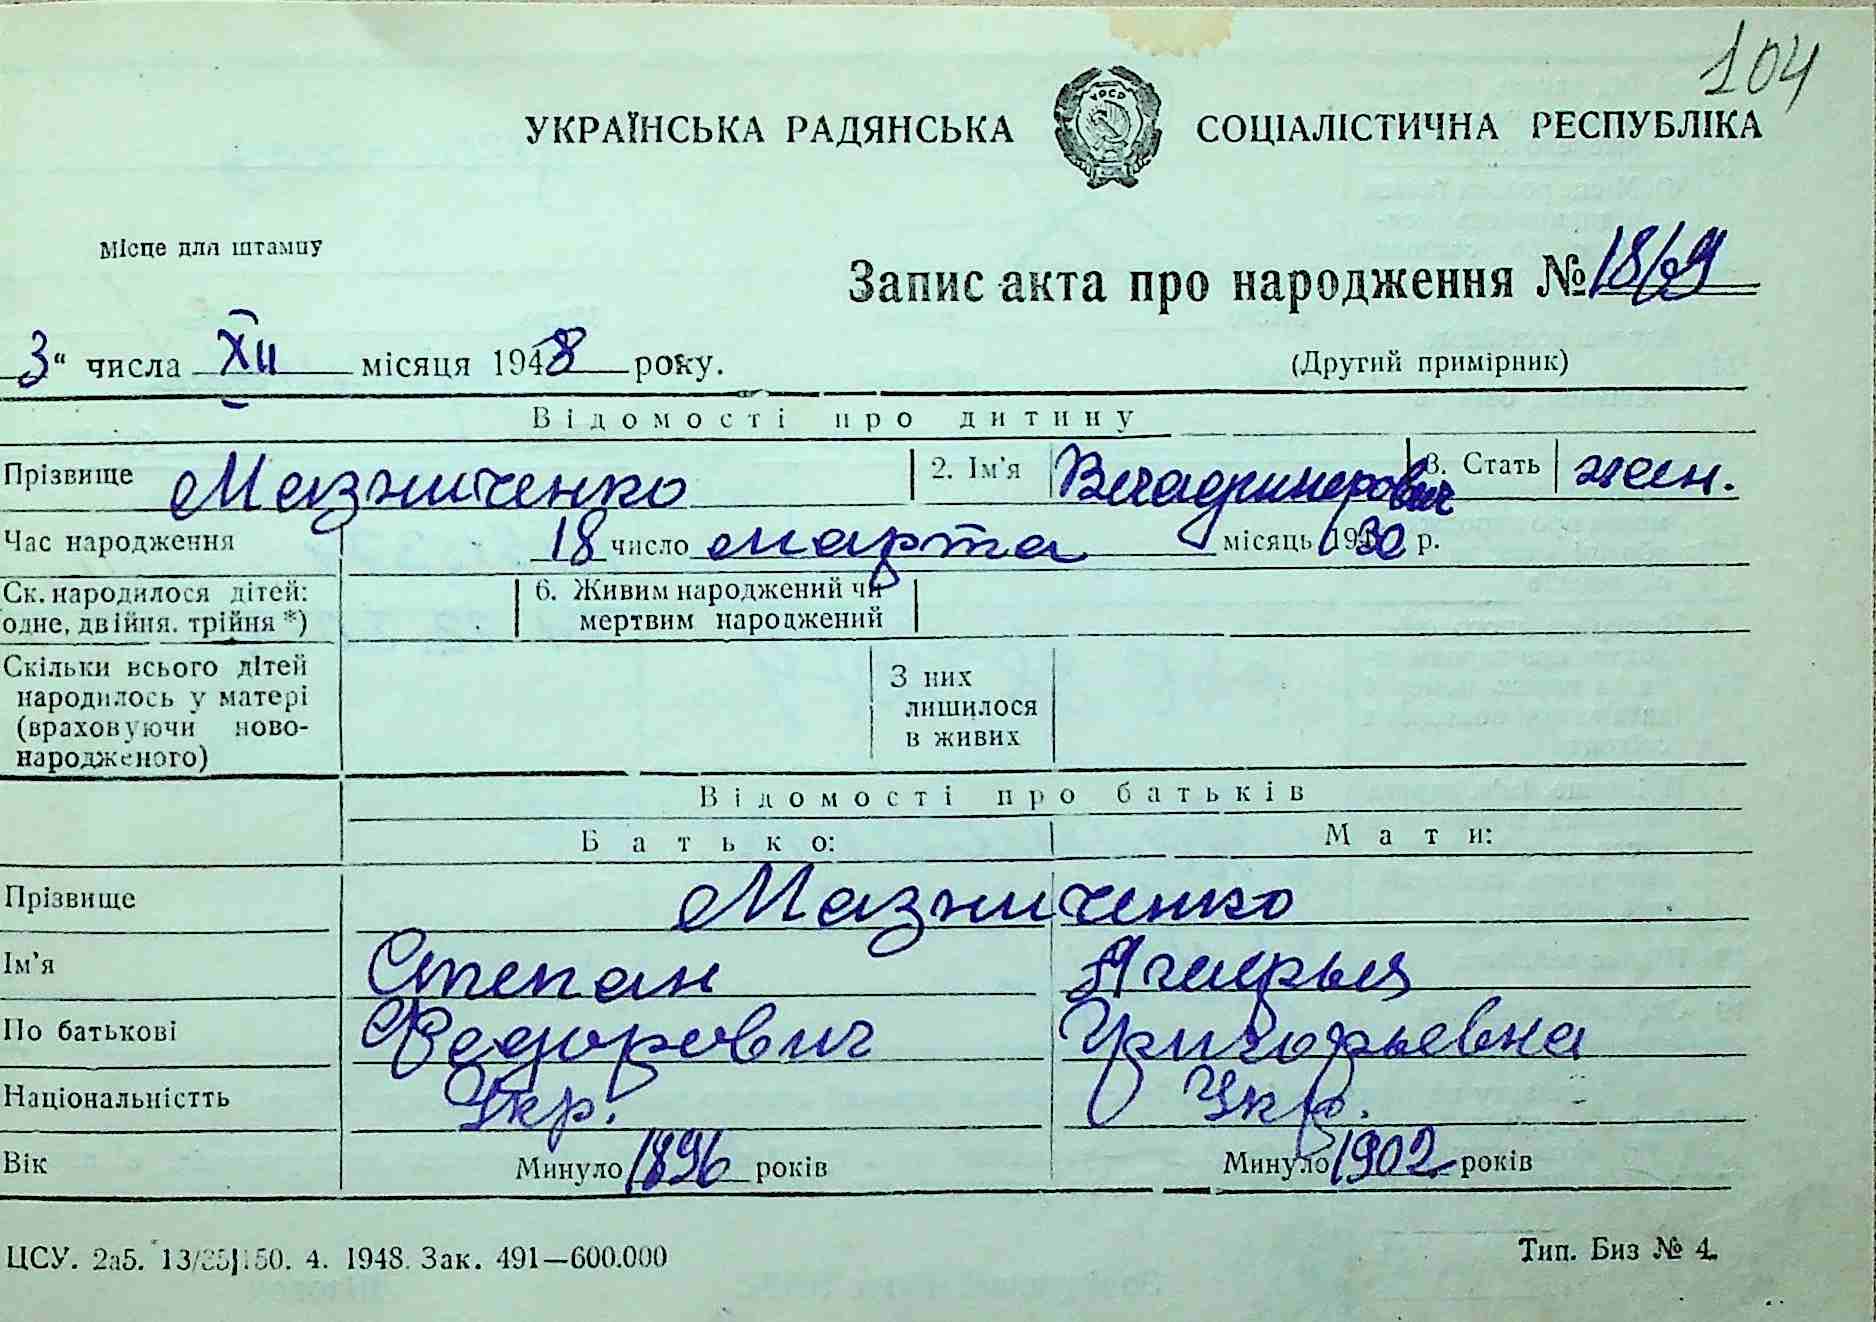 104
УКРАЇНСЬКА РАДЯНСЬКА УРСР СОЦІАЛІСТИЧНА РЕСПУБЛІКА
Місце для штампу
Запис акта про народження № 1869
3" числа XII місяця 1948 року.
(Другий примірник)
Відомості про дитину
Прізвище Мазниченко 2. Ім'я 3. Стать жен.
Час народження 18 число марта місяць 1930 р.
Ск. народилося дітей: 6. Живим народжений чи
одне, двійня. трійня *) мертвим народжений
Скільки всього дітей З них
народилось у матері лишилося
(враховуючи ново- в живих
народженого)
Відомості про батьків
Батько: Мати:
Прізвище Мазниченко
Ім'я Степан
По батькові Федорович Григорьевна
Національністть Укр. Укр.
Вік Минуло 1896 років Минуло 1902 років
ЦСУ. 2а5. 4. 1948. Зак. 491—600.000 Тип. Биз № 4.